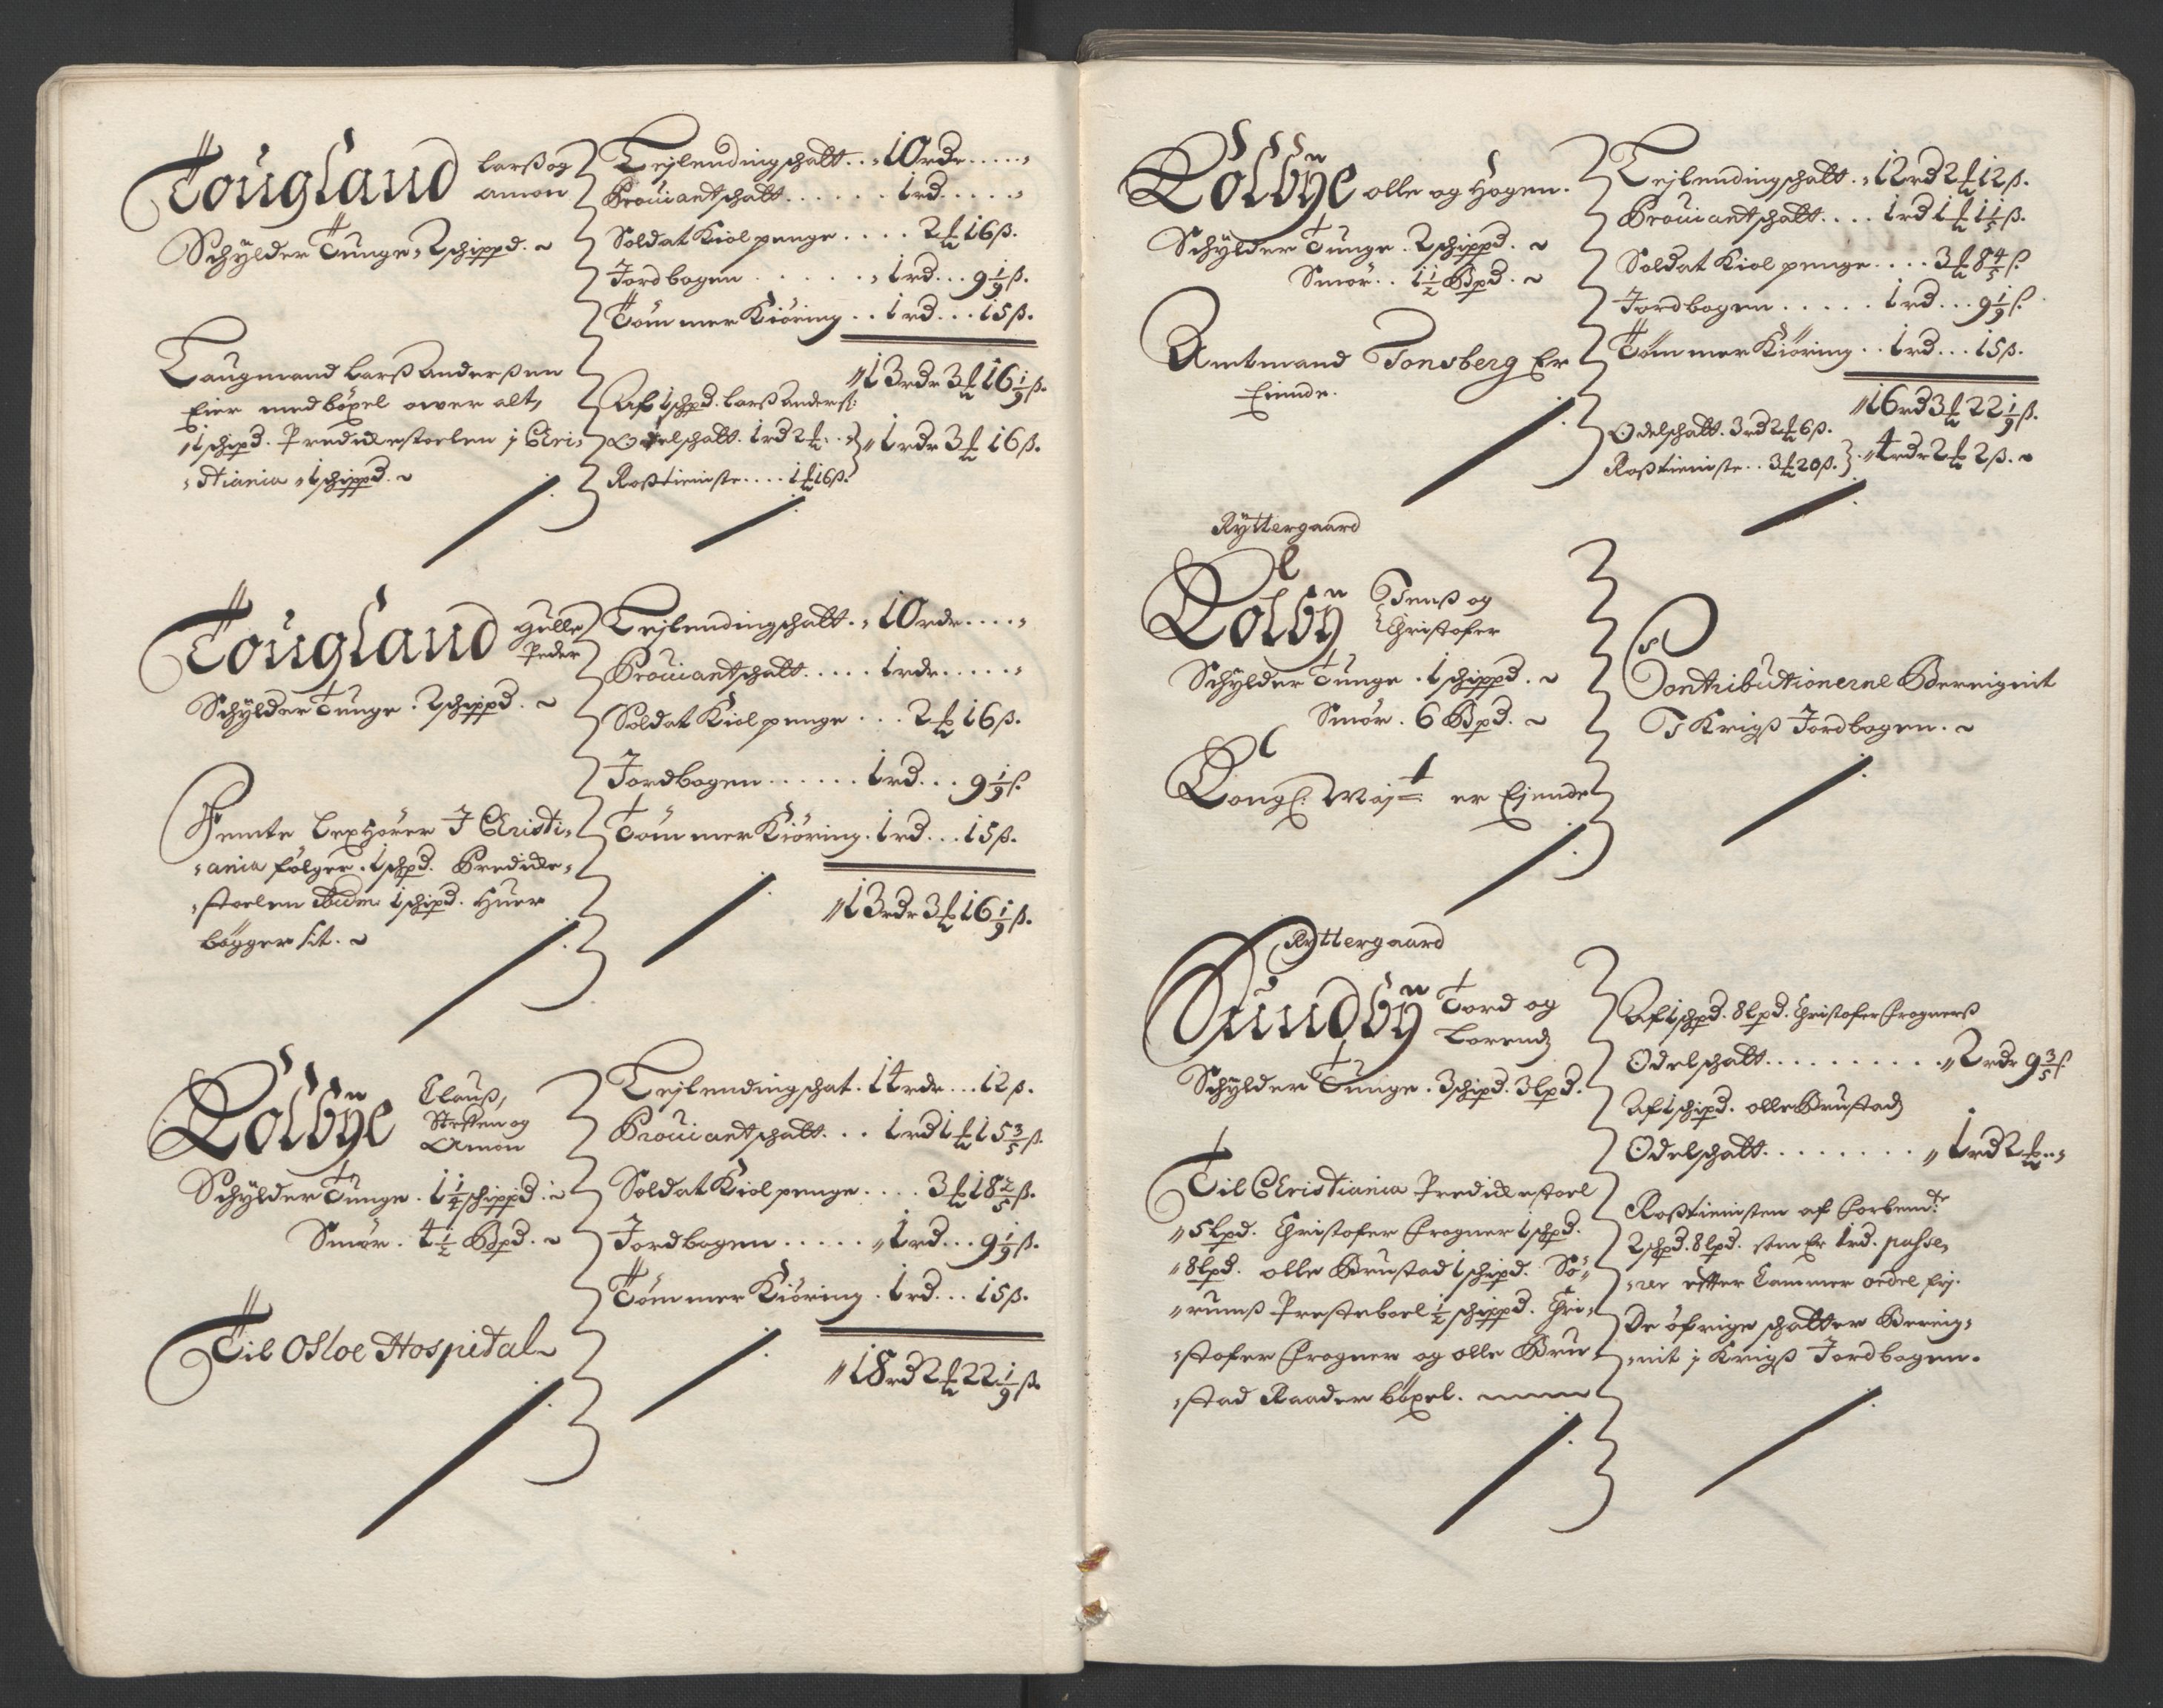 Tougland Larß og
Amon
Schylder Tunge 2 schippd.
Laugmand Larß Anderßen
Eier med böxel ower alt,
1 schipd. Predichestoelen j Chri-
stiania 1 schippd.
Leylendingschatt .. 10 rdr ....
Prouiantschatt ...... 1 rd .....
Soldat Kiol penge .... 2 ℔ 16 ß.
Jordbogen ...... 1 rd ... 9 1/9 ß.
Tömmer Kiöring .. 1 rd ... 15 ß.
13 rdr 3 ℔ 16 1/9 ß.
Af 1 schpd. Larß Anderß:
Odelschatt. 1 rd 2 ℔ ..
Roßtieniste .... 1 ℔ 16 ß. } 1 rdr 3 ℔ 16 ß.
Tougland Gulle
Peder
Schylder Tunge . 2 schippd.
Femte Lexhörer J Christi-
ania følger . 1 schpd. Prediche-
stoelen Ibidm: 1 schipd. Huer
bögger sit.
Leylendingschatt . 10 rdr ....
Prouiantschatt ..... 1 rdr .....
Soldat Kiol penge ... 2 ℔ 16 ß.
Jordbogen ...... 1 rd ... 9 1/9 ß.
Tömmer Kiöring . 1 rd ... 15 ß.
13 rdr 3 ℔ 16 1/9 ß.
Kolbÿe Clauß,
Steffen og
Amon
Schylder Tunge . 1 1/4 schippd.
Smør . 4 1/2 Bpd.
Til Osloe Hospital
Leylendingschat . 14 rdr ... 12 ß.
Prouiantschatt ... 1 rd 1 ℔ 15 3/5 ß.
Soldat Kiol penge .... 3 ℔ 18 2/5 ß.
Jordbogen ..... 1 rd ... 9 1/9 ß.
Tömmer Kiöring . 1 rd ... 15 ß.
18 rd 2 ℔ 22 1/9 ß.
Kolbÿe olle og Hogen.
Schylder Tunge . 2 schippd.
Smör .. 1 1/2 Bpd.
Amtmand Tonsberg Er
Eiende.
Leylendingschatt . 12 rd 2 ℔ 12 ß.
Prouiantschatt .... 1 rd 1 ℔ 1 1/5 ß.
Soldat Kiol penge .... 3 ℔ 8 4/5 ß.
Jordbogen ..... 1 rd ... 9 1/9 ß.
Tömmer Kiöring .. 1 rd ... 15 ß.
16 rd 3 ℔ 22 1/9 ß.
Odelschatt . 3 rd 2 ℔ 6 ß.
Roßtieniste .. 3 ℔ 20 ß. } 4 rdr 2 ℔ 2 ß.
Ryttergaard
Kolbÿ Jenß og
Christofer
Schylder Tunge . 1 schippd.
Smör . 6 Bpd.
Kongl: Maijt er Ejende
Contributionerne Bereignit
J Krigß Jordbogen.
Ryttergaard
Sundbÿ Tord og
Lorendz
Schylder Tunge . 3 schipd. 3 lpd.
Til Christiania Predichestoel
5 lpd. Christofer Frogner 1 schpd.
8 lpd. olle Brustad 1 schipd. Sö-
rumß Presteboel 1/2 schippd. Chri-
stofer Frogner og olle Bru-
stad Raader böxel.
Af 1 schpd. 8 lpd. Christofer Frognerß
Odelschatt .......... 2 rdr 9 3/5 ß
Af 1 schipd. olle Brustadz
Odelschatt ........ 1 rd 2 ℔ ..
Roßtienisten af forbemte
2 schpd. 8 lpd. som Er 1 rd. passe-
rer efter Cammer ordre frj.
De öfrige schatter Bereig-
nit j Krigß Jordbogen.